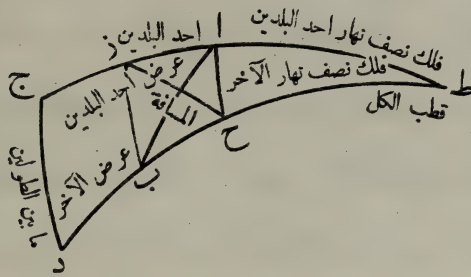 فلك نصف نهار احد البلدين
احد البلدين
ا
ز
ج
ط
فلك نصف نهار الآخر
قطب الكل
عرض احد البلدين
المسافة
ح
ب
عرض الآخر
ما بين الطولين
د